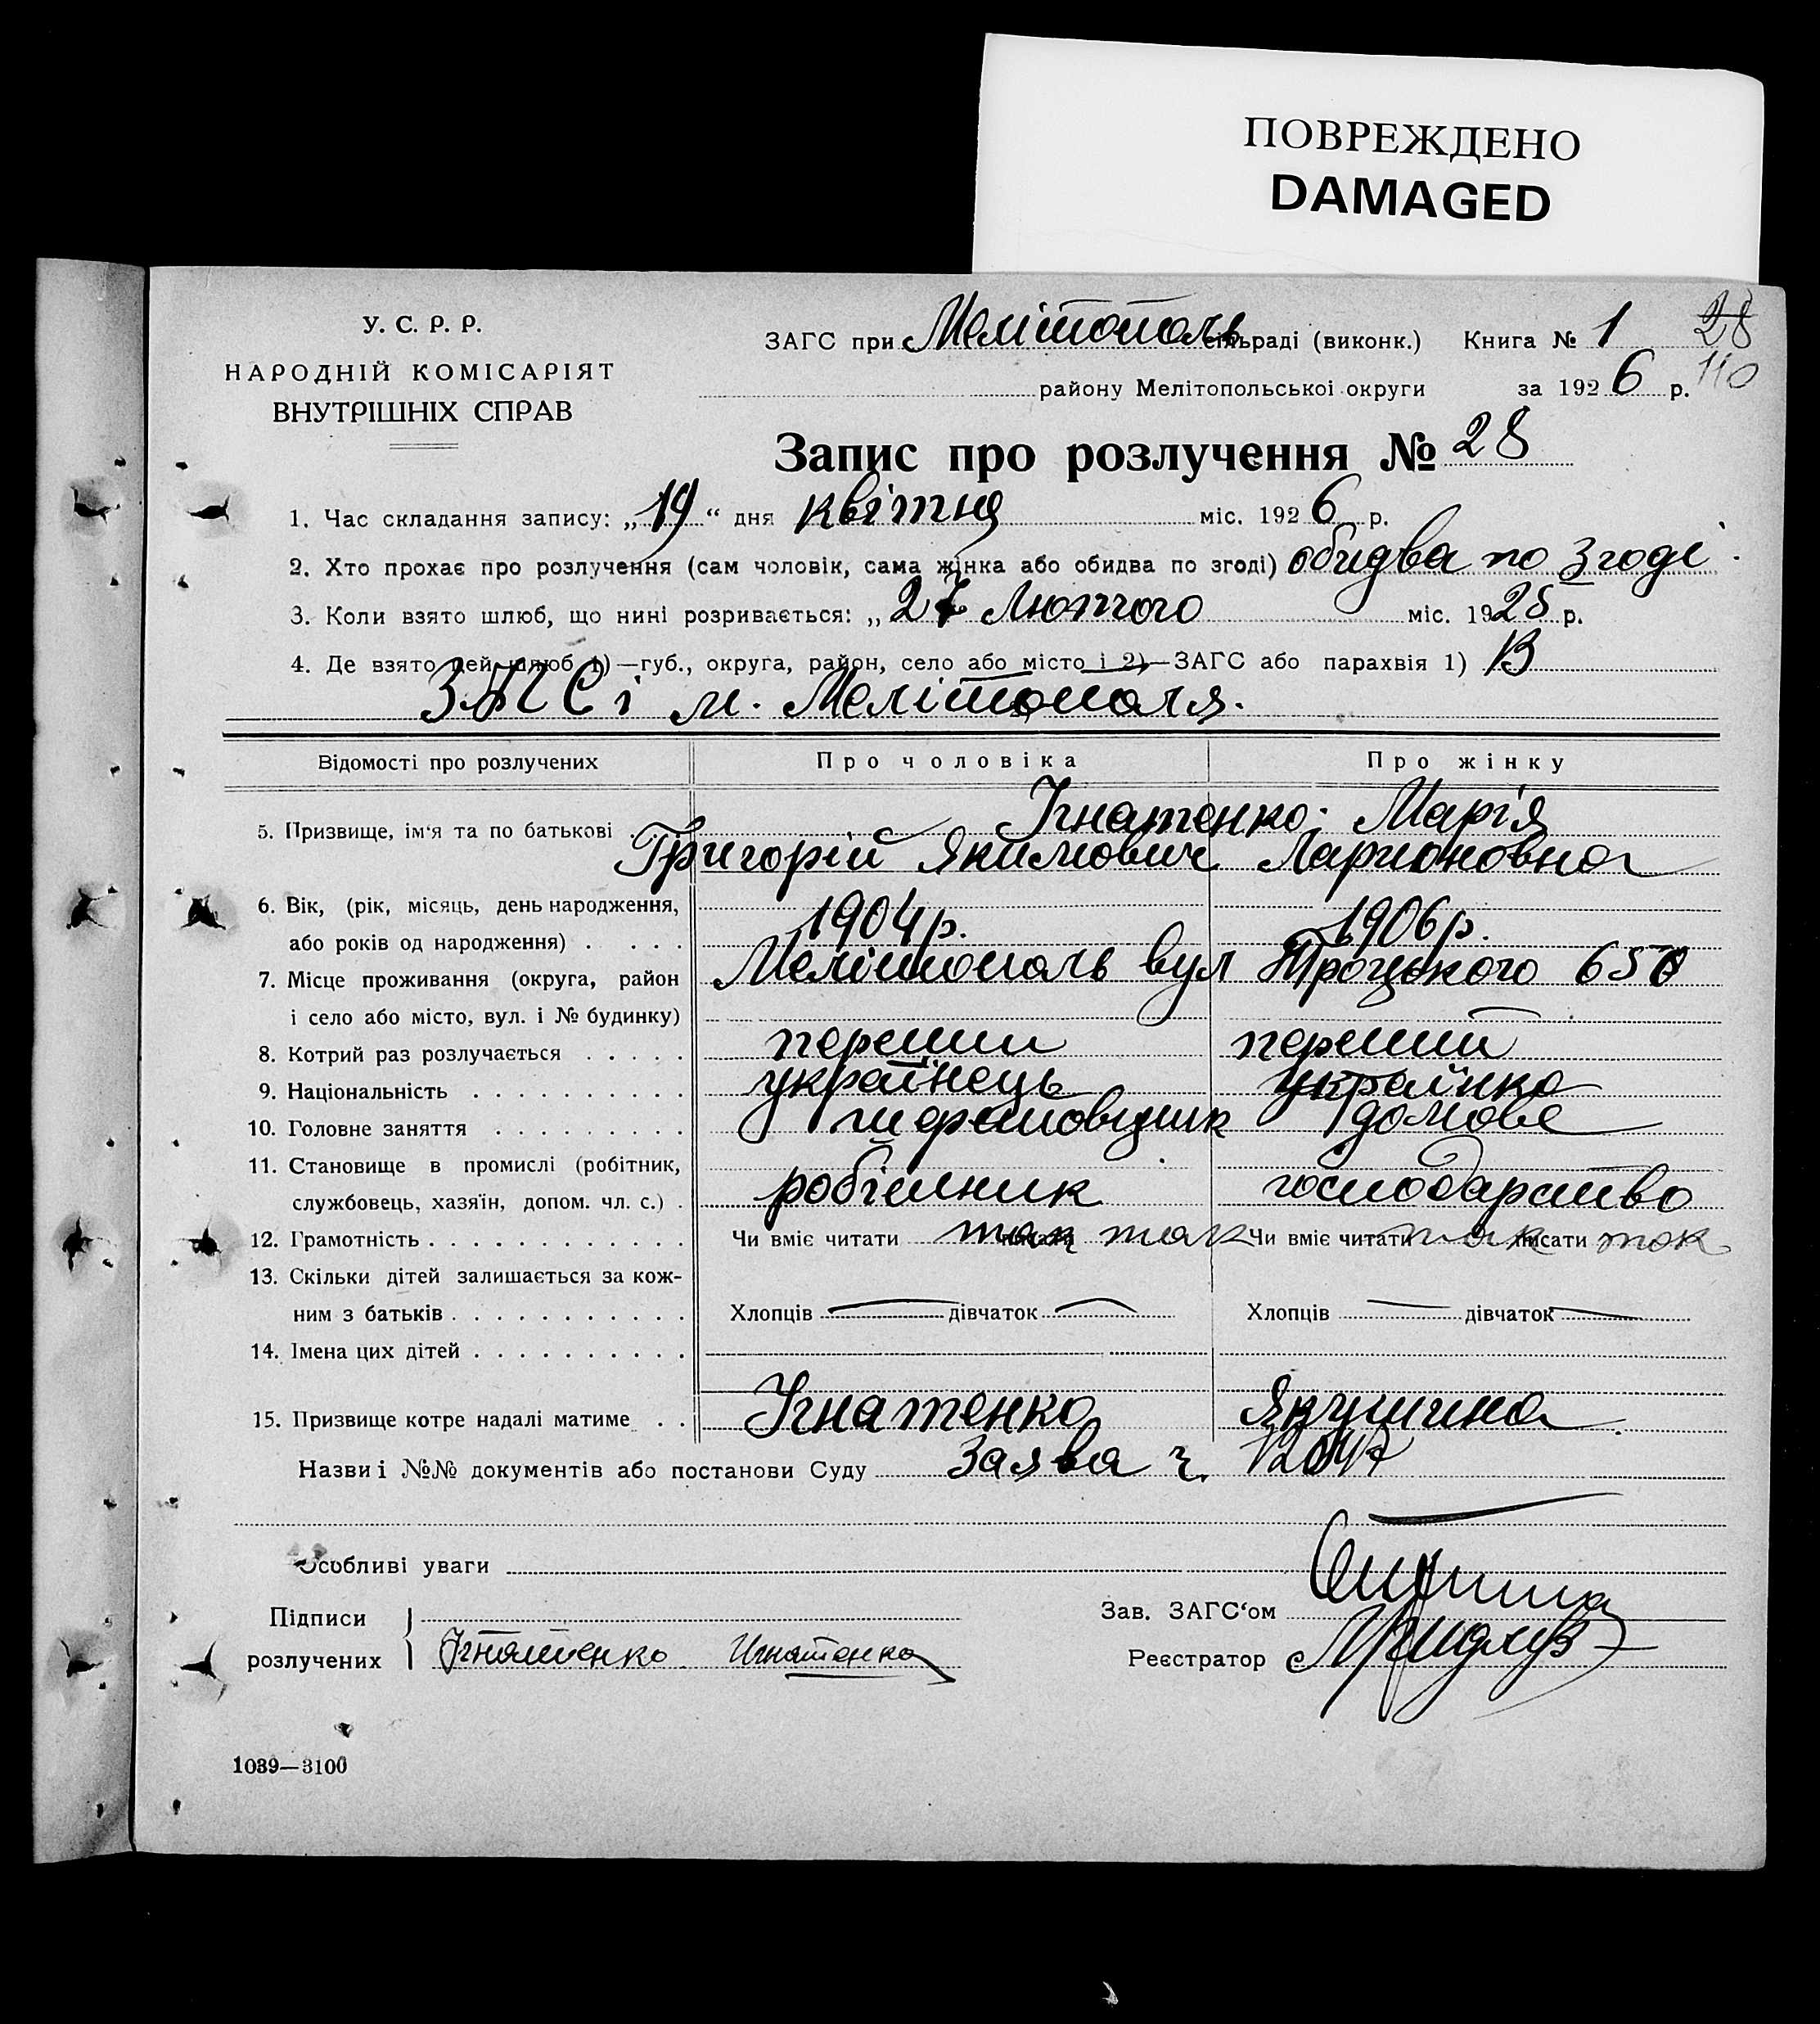 ПОВРЕЖДЕНО
DAMAGED
У. С. Р. Р.
НАРОДНІЙ КОМІСАРІЯТ
ВНУТРІШНІХ СПРАВ
ЗАГС при Мелітополь сільраді (виконк.) Книга № 1 28
110
району Мелітопольської округи за 1926 р.
Запис про розлучення № 28
1. Час складання запису: „19“ дня квітня міс. 1926 р.
2. Хто прохає про розлучення (сам чоловік, сама жінка або обидва по згоді) обидва по згоді.
3. Коли взято шлюб, що нині розривається: „27 Лютого міс. 1925 р.
4. Де взято цей шлюб 1)—губ., округа, район, село або місто і 2)—ЗАГС або парахвія 1) В
ЗАГСі м. Мелітополя.
Відомості про розлучених Про чоловіка Про жінку
5. Призвище, ім‘я та по батькові Ігнатенко Марія
Григорій Якимович Ларионовна
6. Вік, (рік, місяць, день народження,
або років од народження) 1904 р. 1906 р.
7. Місце проживання (округа, район Мелітополь вул Троцького
і село або місто, вул. і № будинку)
8. Котрий раз розлучається перший перший
9. Національність українець українка
10. Головне заняття домове
11. Становище в промислі (робітник,
службовець, хазяїн, допом. чл. с.) робітник господарство
12. Грамотність Чи вміє читати так так Чи вміє читати так писати так
13. Скільки дітей залишається за кож-
ним з батьків Хлопців — дівчаток — Хлопців — дівчаток —
14. Імена цих дітей
15. Призвище котре надалі матиме Ігнатенко
Назви і №№ документів або постанови Суду Заява ч.
Особливі уваги
Підписи Зав. ЗАГС‘ом
розлучених Ігнатенко Игнатенко Реєстратор
1039—3100